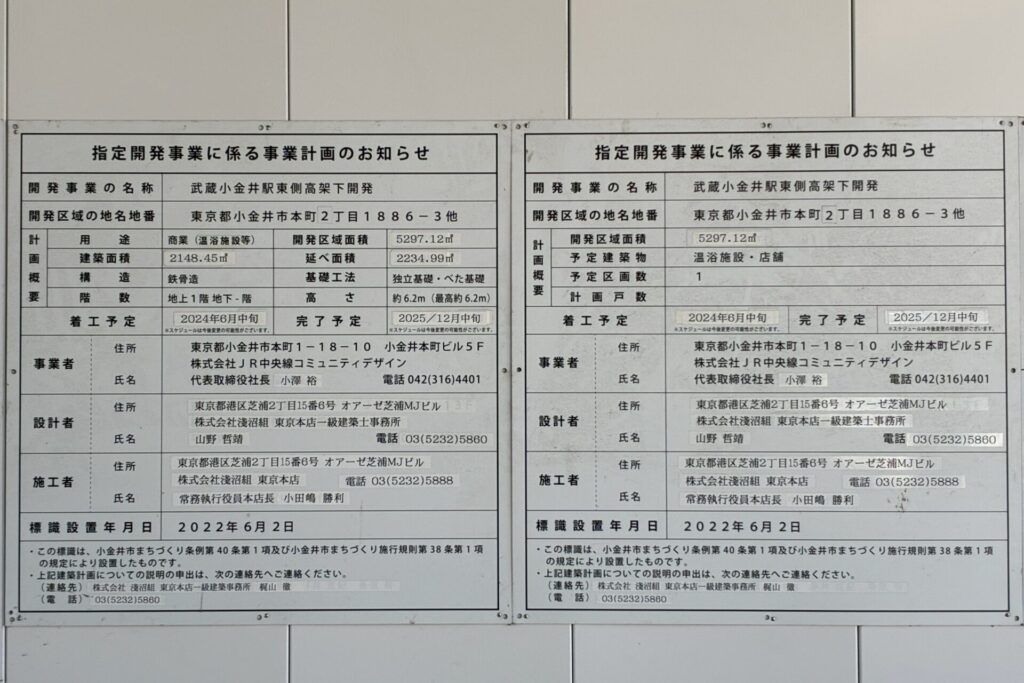 指定開発事業に係る事業計画のお知らせ
開発事業の名称 武蔵小金井駅東側高架下開発
開発区域の地名地番 東京都小金井市本町2丁目1886−3他
計画概要
用途 商業(温浴施設等) 開発区域面積 5297.12㎡
建築面積 2148.45㎡ 延べ面積 2234.99㎡
構造 鉄骨造 基礎工法 独立基礎・べた基礎
階数 地上1階 地下 - 階 高さ 約6.2m(最高約6.2m)
着工予定 2024年6月中旬 完了予定 2025/12月中旬
※スケジュールは今後変更の可能性がございます。 ※スケジュールは今後変更の可能性がございます。
事業者 住所 東京都小金井市本町1−18−10 小金井本町ビル5F
株式会社JR中央線コミュニティデザイン
氏名 代表取締役社長 小澤 裕 電話 042(316)4401
設計者 住所 東京都港区芝浦2丁目15番6号 オアーゼ芝浦MJビル
株式会社淺沼組 東京本店一級建築士事務所
氏名 山野 哲靖 電話 03(5232)5860
施工者 住所 東京都港区芝浦2丁目15番6号 オアーゼ芝浦MJビル
株式会社淺沼組 東京本店 電話 03(5232)5888
氏名 常務執行役員本店長 小田嶋 勝利
標識設置年月日 2022年6月2日
・この標識は、小金井市まちづくり条例第40条第1項及び小金井市まちづくり施行規則第38条第1項
の規定により設置したものです。
・上記建築計画についての説明の申出は、次の連絡先へご連絡ください。
(連絡先) 株式会社 淺沼組 東京本店一級建築事務所 梶山 徹
(電 話) 03(5232)5860
指定開発事業に係る事業計画のお知らせ
開発事業の名称 武蔵小金井駅東側高架下開発
開発区域の地名地番 東京都小金井市本町2丁目1886−3他
計画概要
開発区域面積 5297.12㎡
予定建築物 温浴施設・店舗
予定区画数 1
計画戸数
着工予定 2024年6月中旬 完了予定 2025/12月中旬
※スケジュールは今後変更の可能性がございます。 ※スケジュールは今後変更の可能性がございます。
事業者 住所 東京都小金井市本町1−18−10 小金井本町ビル5F
株式会社JR中央線コミュニティデザイン
氏名 代表取締役社長 小澤 裕 電話 042(316)4401
設計者 住所 東京都港区芝浦2丁目15番6号 オアーゼ芝浦MJビル
株式会社淺沼組 東京本店一級建築士事務所
氏名 山野 哲靖 電話 03(5232)5860
施工者 住所 東京都港区芝浦2丁目15番6号 オアーゼ芝浦MJビル
株式会社淺沼組 東京本店 電話 03(5232)5888
氏名 常務執行役員本店長 小田嶋 勝利
標識設置年月日 2022年6月2日
・この標識は、小金井市まちづくり条例第40条第1項及び小金井市まちづくり施行規則第38条第1項
の規定により設置したものです。
・上記建築計画についての説明の申出は、次の連絡先へご連絡ください。
(連絡先) 株式会社 淺沼組 東京本店一級建築事務所 梶山 徹
(電 話) 03(5232)5860